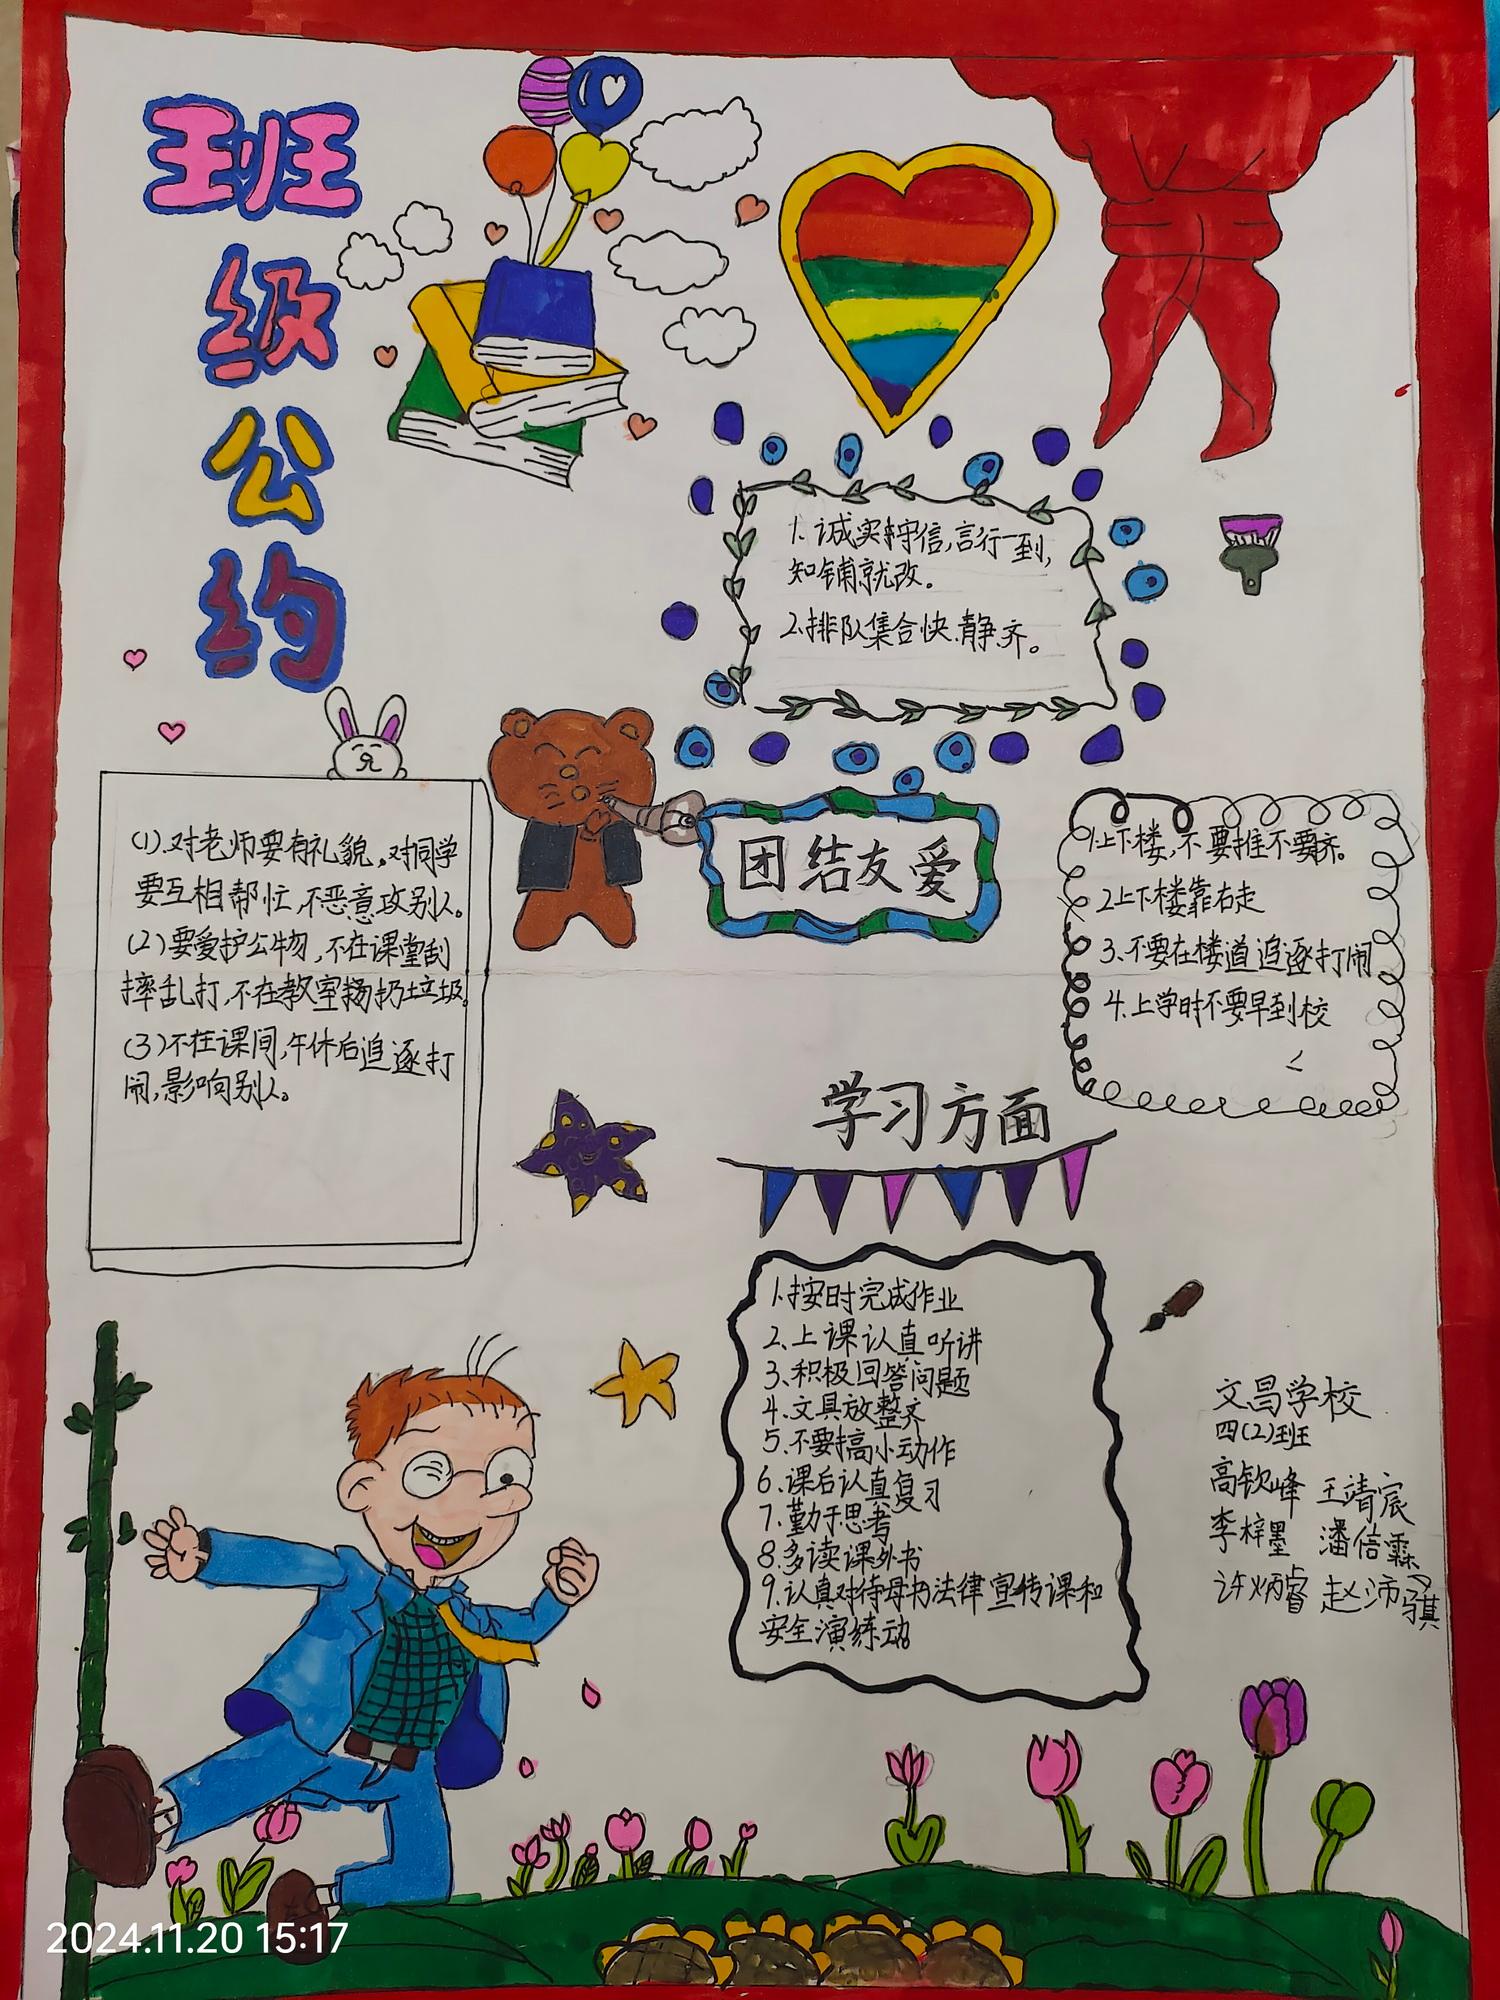 班
级
公
约
1. 诚实守信,言行一到,
知错就改。
2.排队集合快.静.齐。
(1).对老师要有礼貌。对同学
要互相帮忙,不恶意攻别人。
(2)要爱护公物,不在课堂刮
摔乱打,不在教室扔垃圾。
(3)不在课间,午休后追逐打
闹,影响别人。
团结友爱
1.上下楼,不要推不要挤。
2上下楼靠右走
3.不要在楼道追逐打闹
4.上学时不要早到校
学习方面
1.按时完成作业
2.上课认真听讲
3.积极回答问题
4.文具放整齐
5.不要搞小动作
6.课后认真复习
7.勤于思考
8.多读课外书
9.认真对待母书法律宣传课和
安全演练动
文昌学校
四(2)班
高钦峰 王靖宸
李梓墨 潘信霖
许炳睿 赵沛骐
2024.11.20 15:17